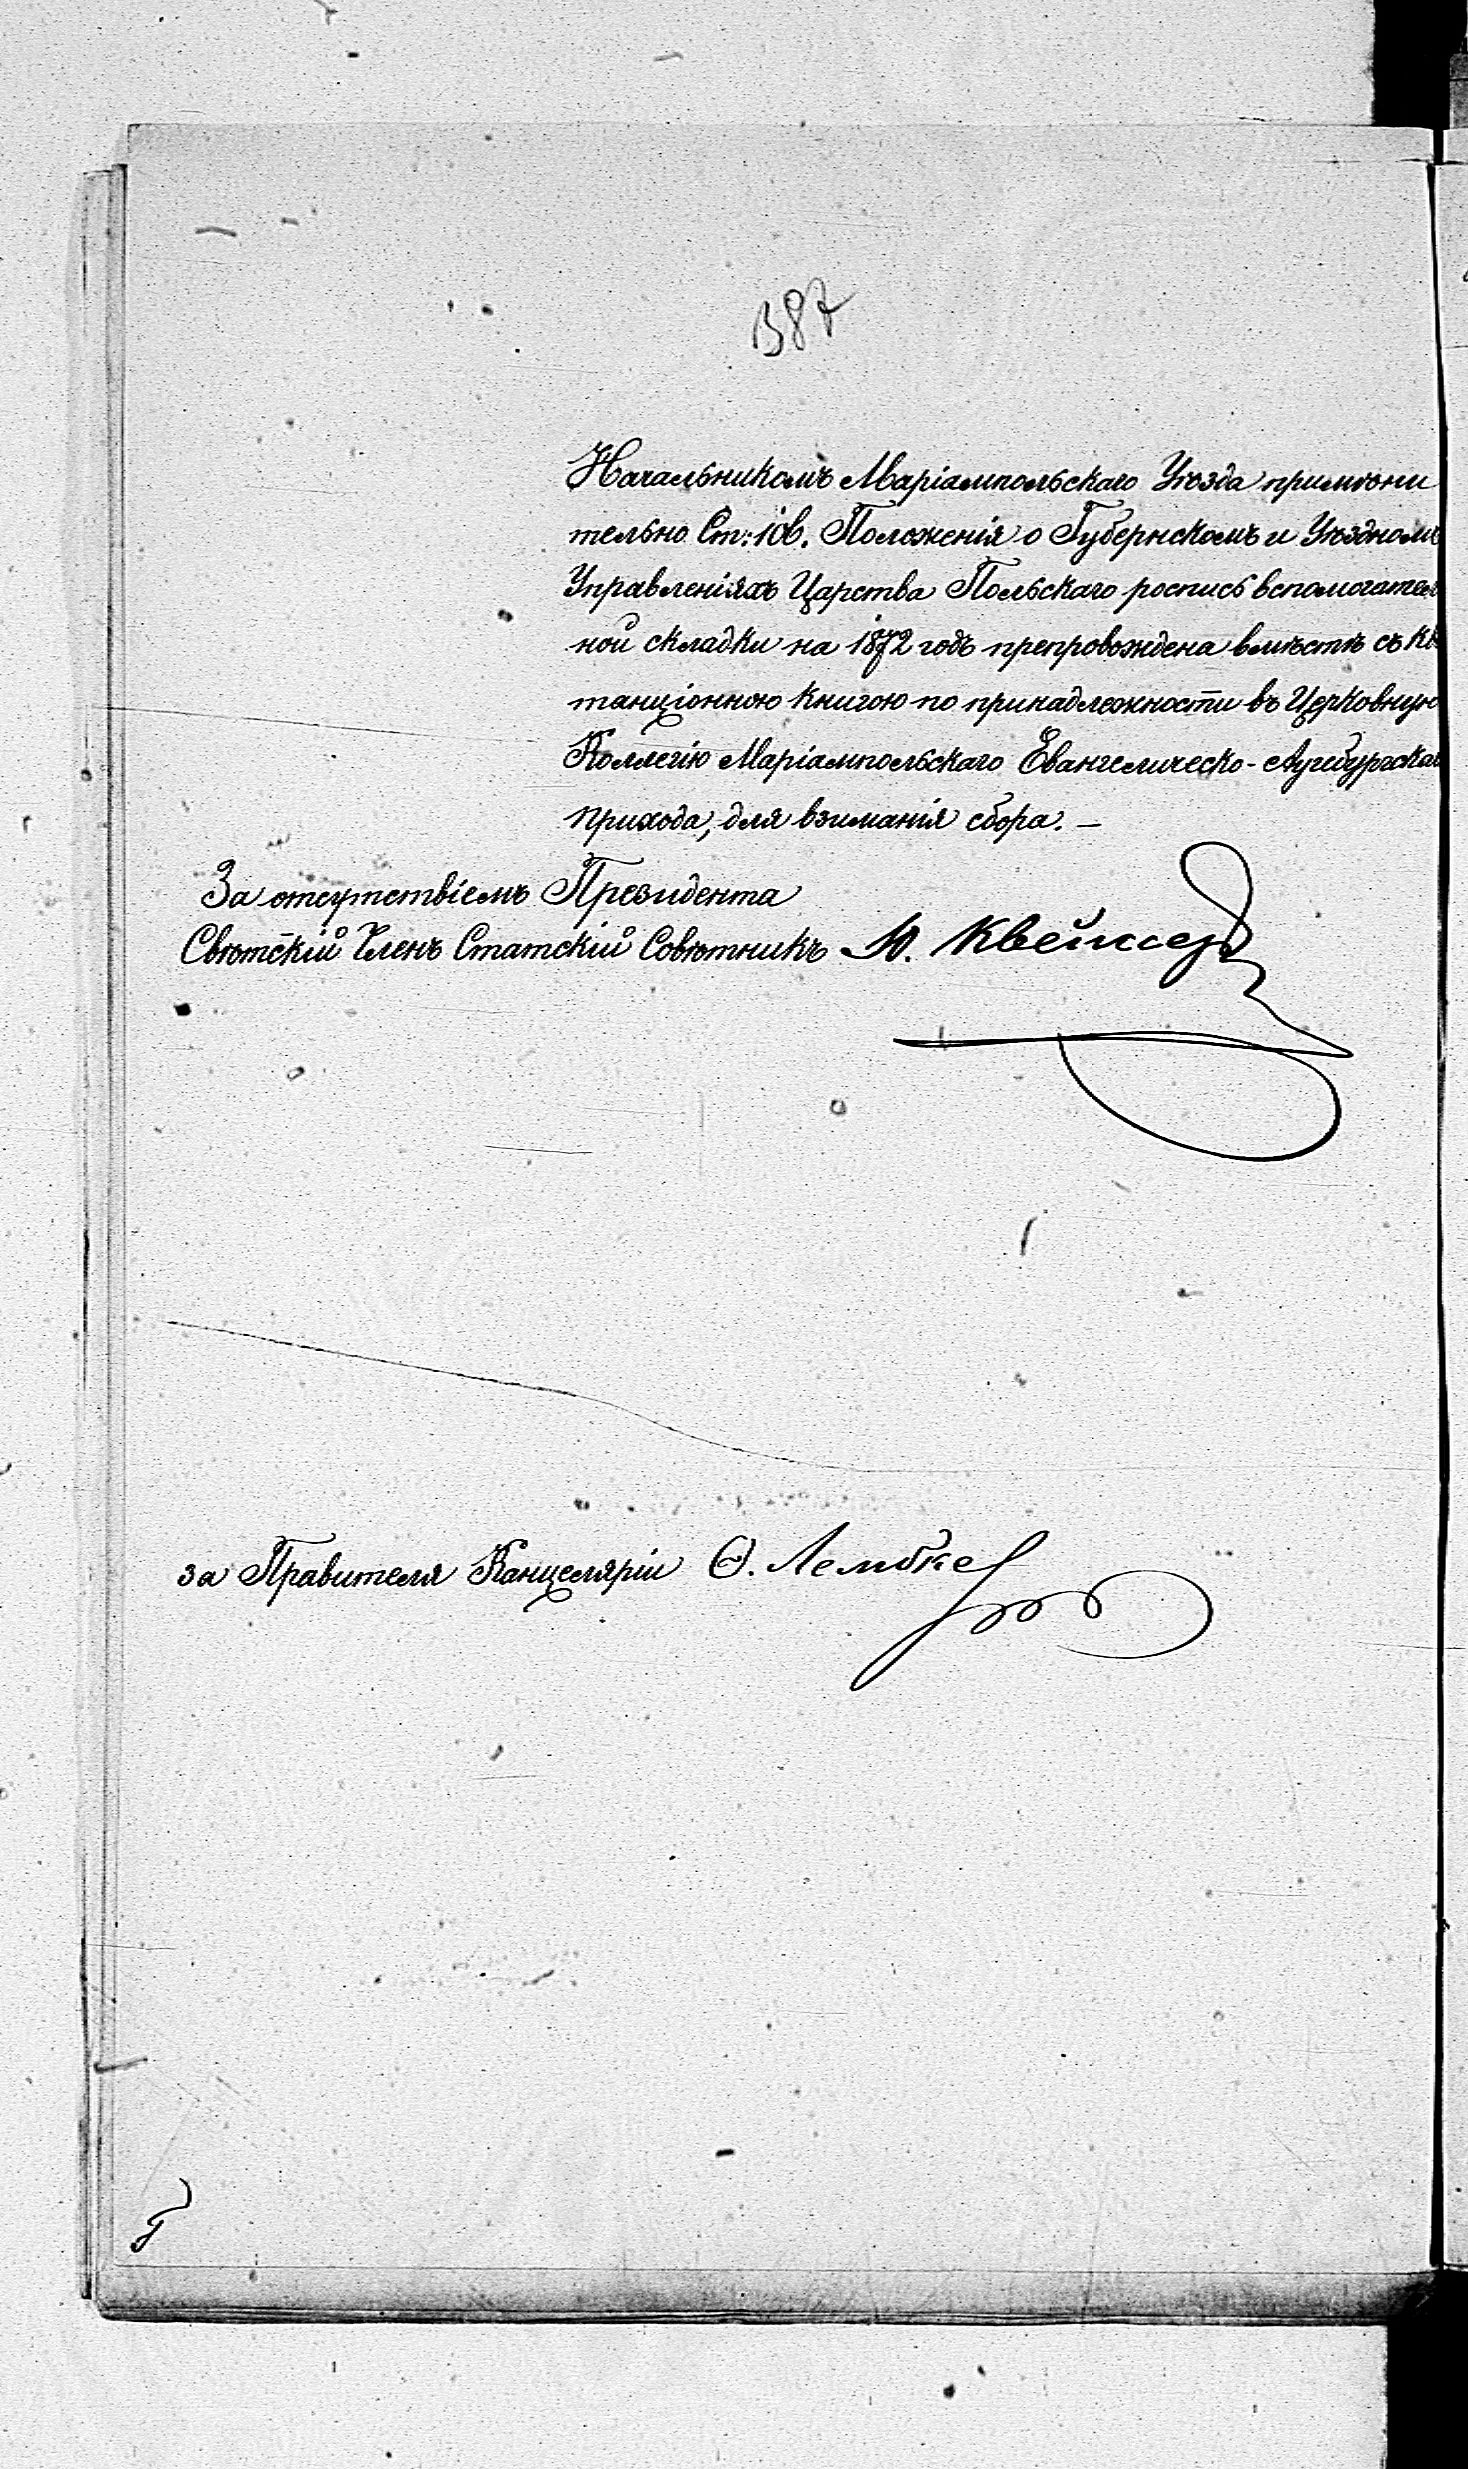 387
Начальникомъ Маріампольскаго Уѣзда примѣни
тельно Ст: 106. Положенія о Губернскомъ и Уѣздномъ
Управленіяхъ Царства Польскаго роспись вспомогатель
ной складки на 1872 годъ препровождена вмѣстѣ съ кв
танціонною книгою по принадлежности въ Церковную
Коллегію Маріампольскаго Евангелическо-Аугсбургскаго
прихода, для взиманія сбора. —
За отсутствіемъ Президента
Свѣтскій Членъ Статскій Совѣтникъ Ю. Квейсер
за Правителя Канцеляріи Ѳ. Лембке